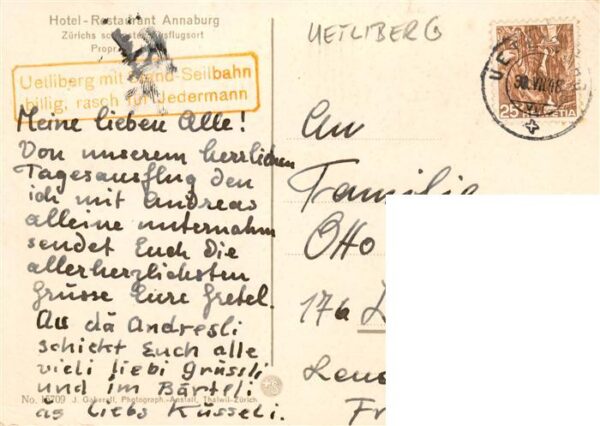 Hotel-Restaurant Annaburg
Zürichs schönster Ausflugsort
Propr
Uetliberg mit Stand-Seilbahn
billig, rasch für Jedermann
UETLIBERG
UETLIBERG
30.VII.48
25
HELVETIA
Meine lieben Alle!
Von unserem herrlichen
Tagesausflug den
ich mit Andreas
alleine unternahm
sendet Euch die
allerherzlichsten
Grüsse Eure Gretel.
Au dä Andresli
schickt Euch alle
vieli liebi Grüssli
und im Bärteli
äs liebs Küsseli.
An
Familie
Otto
17a
Fr
No. 15709 J. Gaberell, Photograph.-Anstalt, Thalwil-Zürich